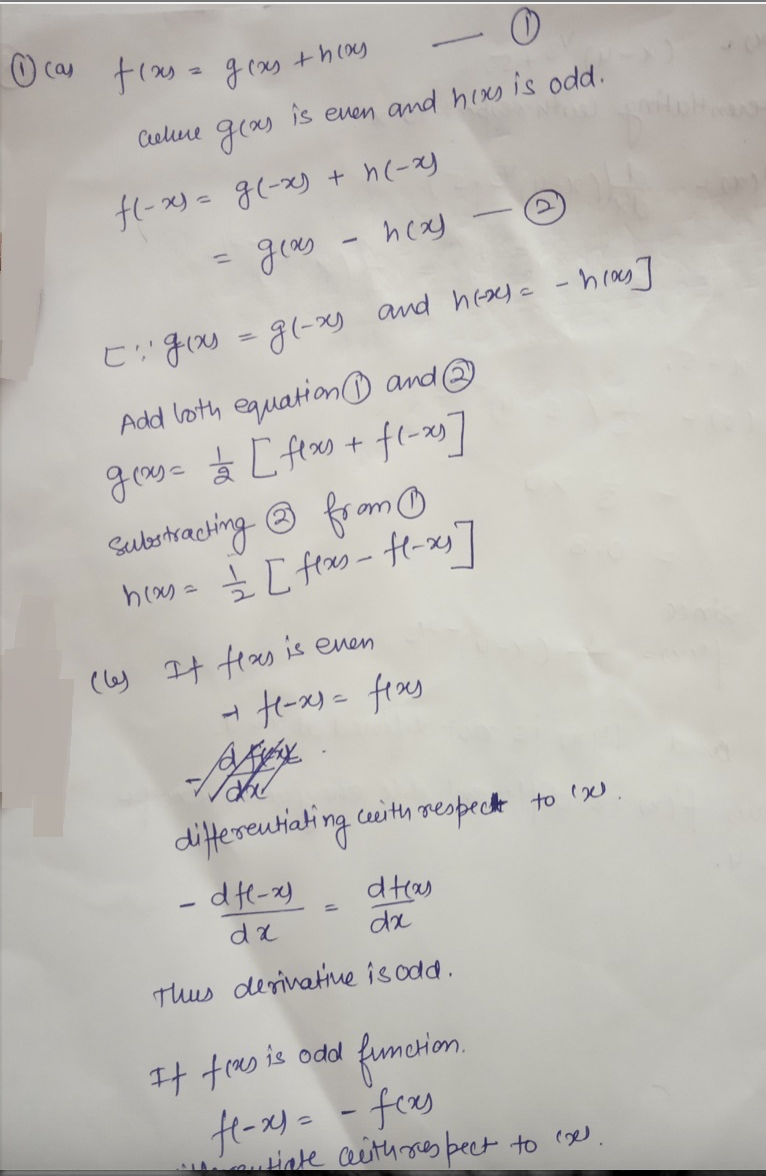 ① (a) f(x) = g(x) + h(x) — ①
where g(x) is even and h(x) is odd.
f(-x) = g(-x) + h(-x)
= g(x) - h(x) — ②
[∵ g(x) = g(-x) and h(-x) = - h(x)]
Add both equation ① and ②
g(x) = 1/2 [f(x) + f(-x)]
Substracting ② from ①
h(x) = 1/2 [f(x) - f(-x)]
(b) If f(x) is even
→ f(-x) = f(x)
differentiating with respect to 'x'.
- df(-x)/dx = df(x)/dx
Thus derivative is odd.
If f(x) is odd function.
f(-x) = - f(x)
with respect to 'x'.